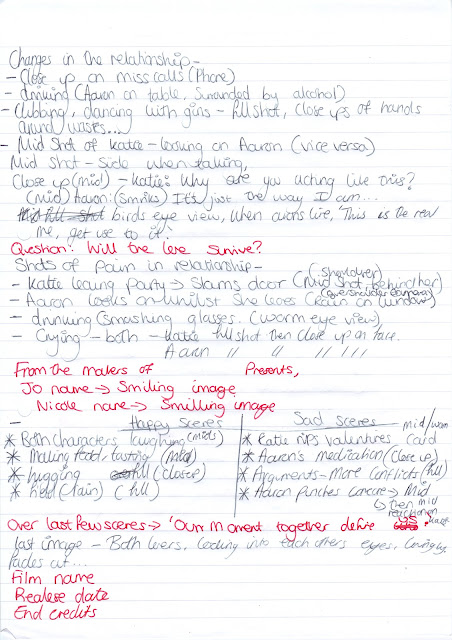 Changes in the relationship -
- Close up on miss calls (Phone)
- drinking (Aaron on table, surrounded by alcohol)
- Clubbing, dancing with girls - full shot, close ups of hands
around waises...
- Mid Shot of Katie - leaving on Aaron (vice versa)
Mid Shot - Side when talking,
Close up (mid) - Katie: Why are you acting like this?
(mid) Aaron: (Smirks) It's just the way I am...
birds eye view, when avons live, This is the real
me, get use to it!
Question: Will the love survive?
Shots of Pain in relationship -
- Katie leaving Party → Slams door (Mid Shot, behind her)
(shoulder)
- Aaron looks on whilst She leaves (rain on window)
- drinking (smashing glasses. (worm eye view)
- Crying - both - Katie full shot then close up on face.
Aaron " " " " "
From the makers of Presents,
Jo name → Smiling image
Nicole name → Smilling image
- Happy scenes
* Both characters laughing (mids)
* Making food, tasting (mid)
* hugging (closeup)
* field (fair) (full)
Sad scenes mid/worm
* Katie rips valentines card
* Aaron's medication (close up)
* Arguments - More conflicts (full)
* Aaron punches → Mid
↳ then mid
reaction on
Over last few scenes → 'Our Moment together define us'.
last image - Both lovers, looking into each others eyes,
fades out...
Film name
Realese date
End credits